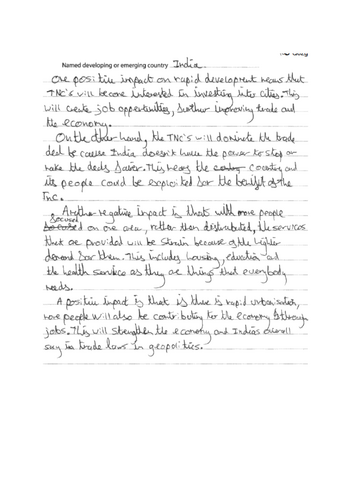 Named developing or emerging country India.
One positive impact on rapid development means that
TNC's will become interested in investing into cities. This
will create job opportunities, further improving trade and
the economy.
On the other hand, the TNC's will dominate the trade
deal because India doesn't have the power to stop or
make the deals fairer. This means the country and
its people could be exploited for the benefit of the
TNC.
Another negative impact is thats with more people
focused
on one area, rather then distributed, the services
that are provided will be strain because of the higher
demand for them. This includes housing, education and
the health service as they are things that everybody
needs.
A positive impact is that is there is rapid urbanisation,
more people will also be contributing to the economy through
jobs. This will strengthen the economy and India's overall
say in trade laws in geopolitics.